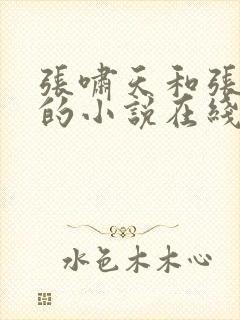 張嘯天和張
的小說在綫
水色木木心